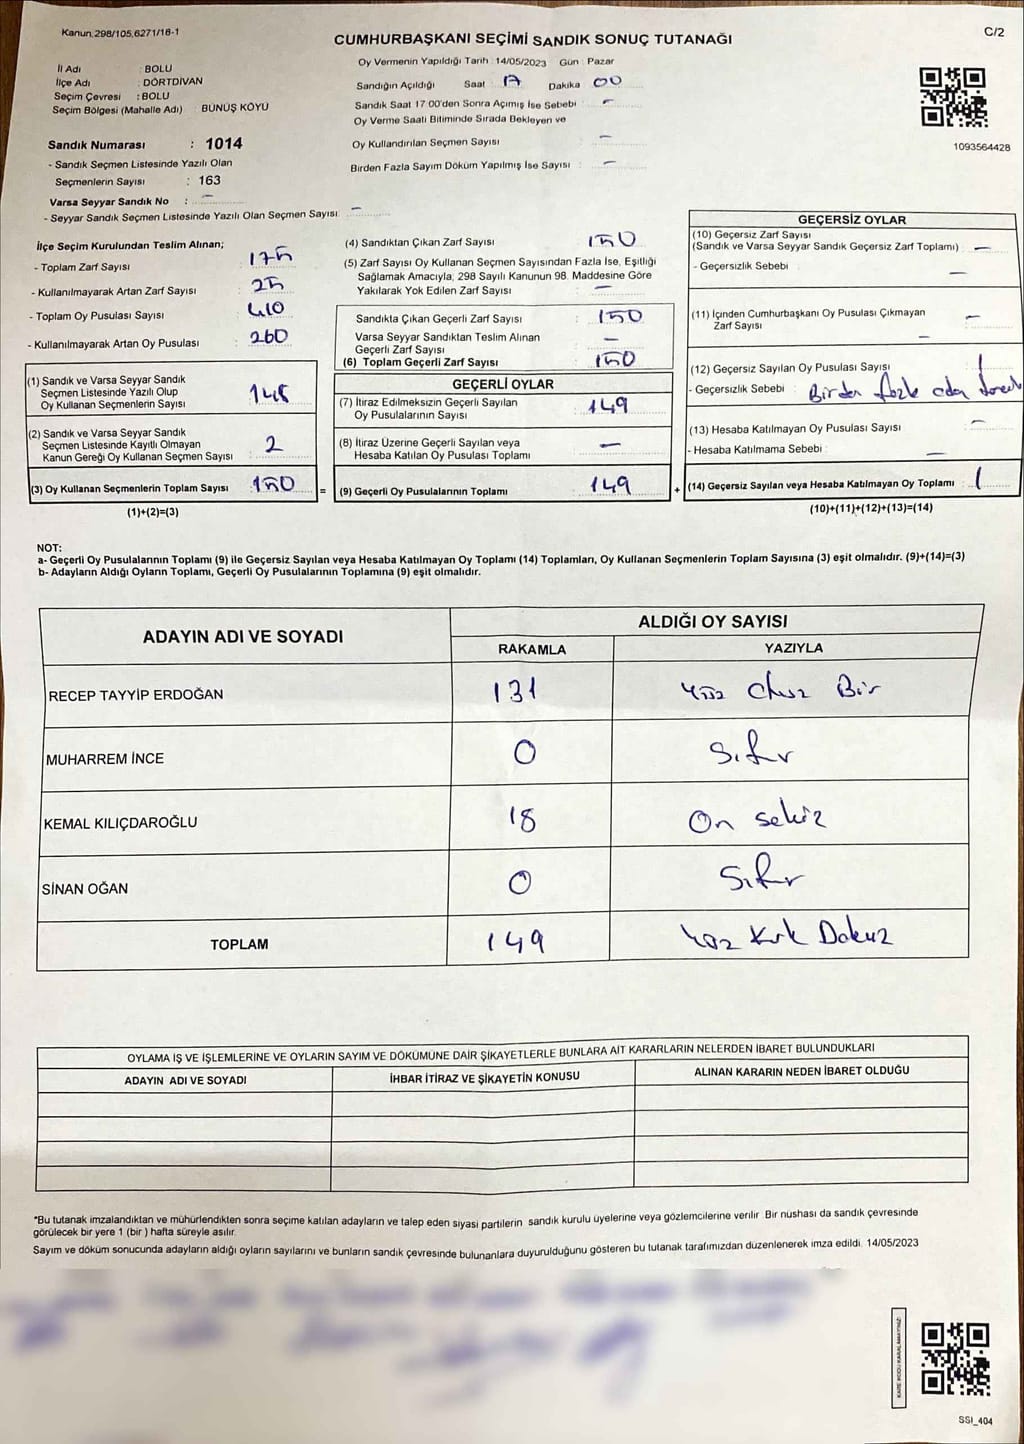 Kanun,298/105,6271/16-1
C/2
CUMHURBAŞKANI SEÇİMİ SANDIK SONUÇ TUTANAĞI
İl Adı : BOLU
İlçe Adı : DÖRTDİVAN
Seçim Çevresi : BOLU
Seçim Bölgesi (Mahalle Adı) BÜNÜŞ KÖYÜ
Oy Vermenin Yapıldığı Tarih : 14/05/2023 Gün : Pazar
Sandığın Açıldığı Saat 17 Dakika 00
Sandık Saat 17:00'den Sonra Açımış İse Sebebi : -
Oy Verme Saati Bitiminde Sırada Bekleyen ve
Oy Kullandırılan Seçmen Sayısı : -
Birden Fazla Sayım Döküm Yapılmış İse Sayısı : -
1093564428
Sandık Numarası : 1014
- Sandık Seçmen Listesinde Yazılı Olan
Seçmenlerin Sayısı : 163
Varsa Seyyar Sandık No : -
- Seyyar Sandık Seçmen Listesinde Yazılı Olan Seçmen Sayısı: -
İlçe Seçim Kurulundan Teslim Alınan;
- Toplam Zarf Sayısı : 175
- Kullanılmayarak Artan Zarf Sayısı : 25
- Toplam Oy Pusulası Sayısı : 410
- Kullanılmayarak Artan Oy Pusulası : 260
(1) Sandık ve Varsa Seyyar Sandık
Seçmen Listesinde Yazılı Olup
Oy Kullanan Seçmenlerin Sayısı : 148
(2) Sandık ve Varsa Seyyar Sandık
Seçmen Listesinde Kayıtlı Olmayan
Kanun Gereği Oy Kullanan Seçmen Sayısı : 2
(3) Oy Kullanan Seçmenlerin Toplam Sayısı : 150
=
(1)+(2)=(3)
(4) Sandıktan Çıkan Zarf Sayısı : 150
(5) Zarf Sayısı Oy Kullanan Seçmen Sayısından Fazla İse, Eşitliği
Sağlamak Amacıyla, 298 Sayılı Kanunun 98. Maddesine Göre
Yakılarak Yok Edilen Zarf Sayısı : -
Sandıkta Çıkan Geçerli Zarf Sayısı : 150
Varsa Seyyar Sandıktan Teslim Alınan
Geçerli Zarf Sayısı : -
(6) Toplam Geçerli Zarf Sayısı : 150
GEÇERLİ OYLAR
(7) İtiraz Edilmeksizin Geçerli Sayılan
Oy Pusulalarının Sayısı : 149
(8) İtiraz Üzerine Geçerli Sayılan veya
Hesaba Katılan Oy Pusulası Toplamı : -
(9) Geçerli Oy Pusulalarının Toplamı : 149
+
GEÇERSİZ OYLAR
(10) Geçersiz Zarf Sayısı
(Sandık ve Varsa Seyyar Sandık Geçersiz Zarf Toplamı) : -
- Geçersizlik Sebebi : -
(11) İçinden Cumhurbaşkanı Oy Pusulası Çıkmayan
Zarf Sayısı : -
-
(12) Geçersiz Sayılan Oy Pusulası Sayısı : 1
- Geçersizlik Sebebi : Birden fazla
(13) Hesaba Katılmayan Oy Pusulası Sayısı : -
- Hesaba Katılmama Sebebi : -
(14) Geçersiz Sayılan veya Hesaba Katılmayan Oy Toplamı : 1
(10)+(11)+(12)+(13)=(14)
NOT:
a- Geçerli Oy Pusulalarının Toplamı (9) ile Geçersiz Sayılan veya Hesaba Katılmayan Oy Toplamı (14) Toplamları, Oy Kullanan Seçmenlerin Toplam Sayısına (3) eşit olmalıdır. (9)+(14)=(3)
b- Adayların Aldığı Oyların Toplamı, Geçerli Oy Pusulalarının Toplamına (9) eşit olmalıdır.
ADAYIN ADI VE SOYADI
ALDIĞI OY SAYISI
RAKAMLA YAZIYLA
RECEP TAYYİP ERDOĞAN 131 yüz otuz Bir
MUHARREM İNCE 0 Sıfır
KEMAL KILIÇDAROĞLU 18 On sekiz
SİNAN OĞAN 0 Sıfır
TOPLAM 149 yüz Kırk Dokuz
OYLAMA İŞ VE İŞLEMLERİNE VE OYLARIN SAYIM VE DÖKÜMÜNE DAİR ŞİKAYETLERLE BUNLARA AİT KARARLARIN NELERDEN İBARET BULUNDUKLARI
ADAYIN ADI VE SOYADI İHBAR İTİRAZ VE ŞİKAYETİN KONUSU ALINAN KARARIN NEDEN İBARET OLDUĞU
*Bu tutanak imzalandıktan ve mühürlendikten sonra seçime katılan adayların ve talep eden siyasi partilerin sandık kurulu üyelerine veya gözlemcilerine verilir. Bir nushası da sandık çevresinde
görülecek bir yere 1 (bir) hafta süreyle asılır.
Sayım ve döküm sonucunda adayların aldığı oyların sayılarını ve bunların sandık çevresinde bulunanlara duyurulduğunu gösteren bu tutanak tarafımızdan düzenlenerek imza edildi. 14/05/2023
KARE KODU KARALAMAYINIZ!
SSI_404